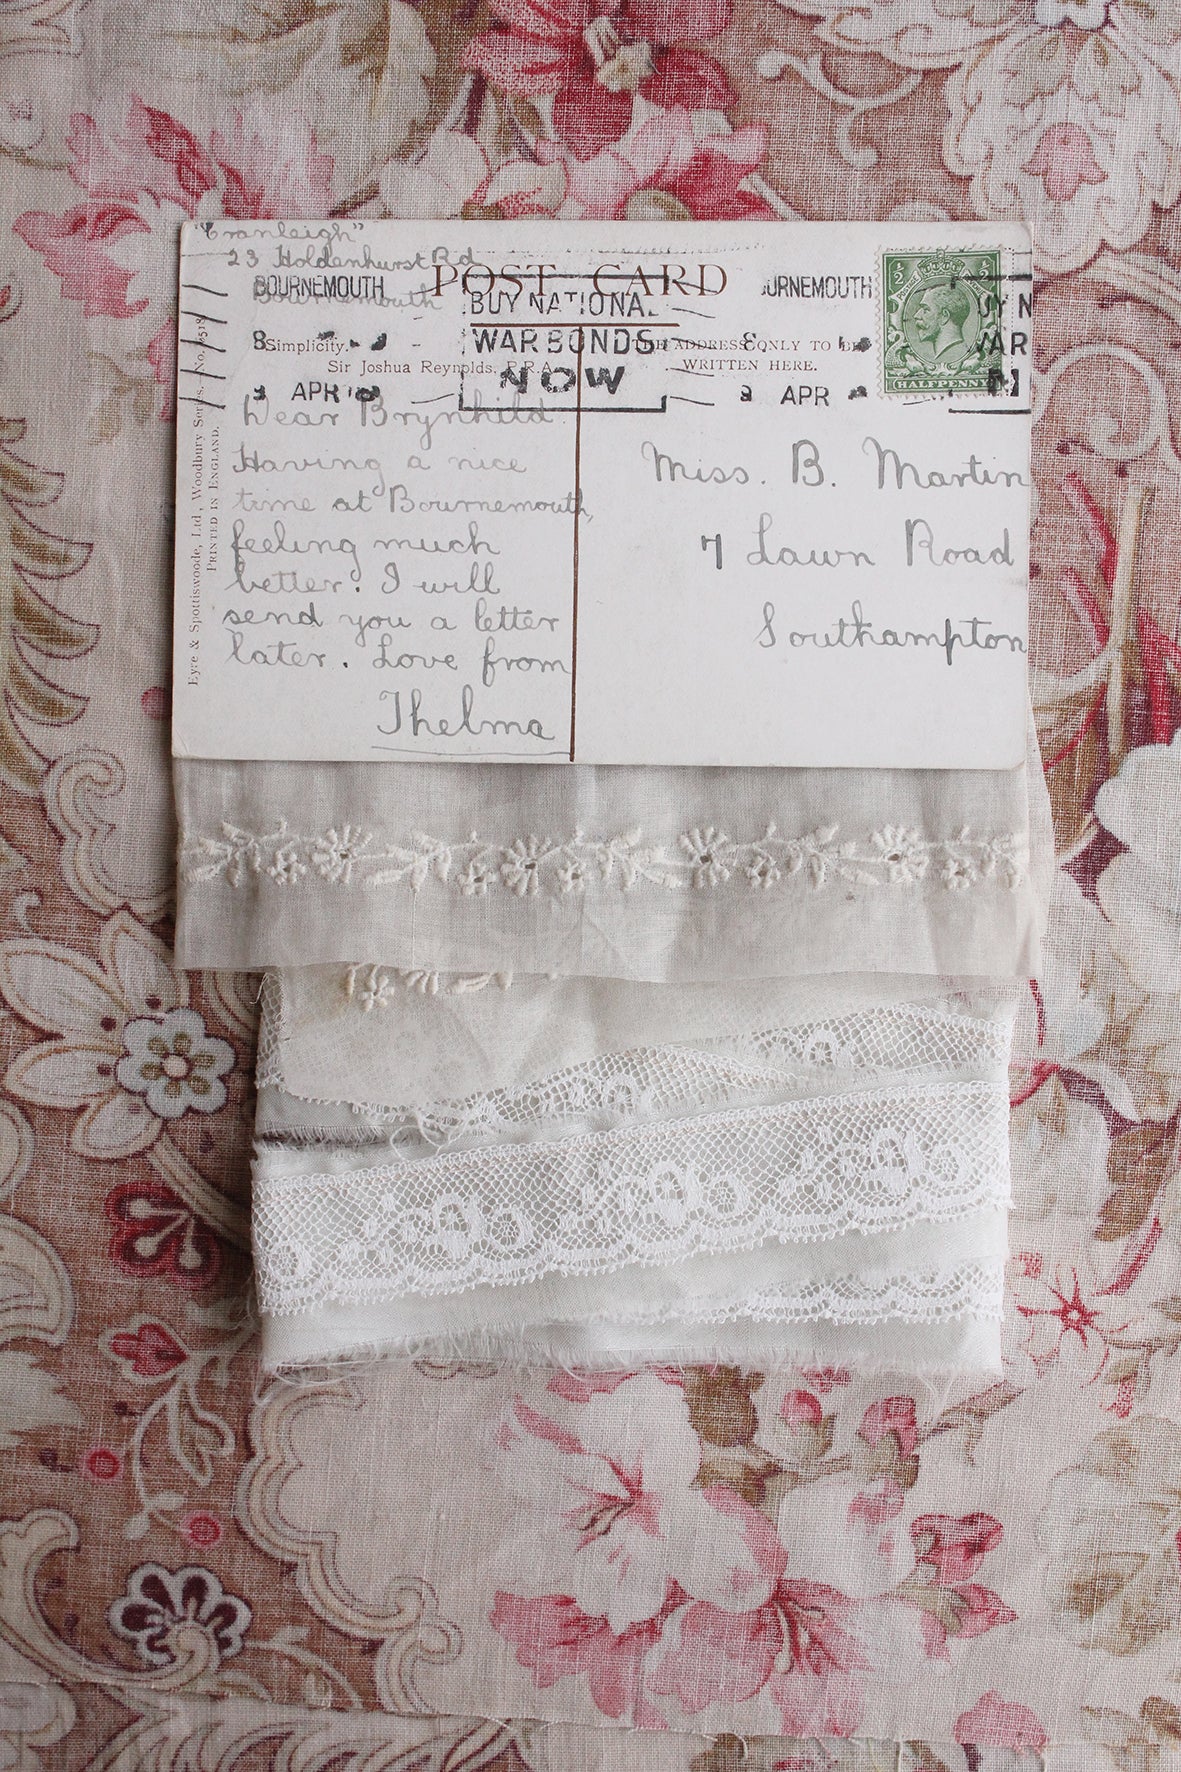 "Cranleigh"
23 Holdenhurst Rd
Bournemouth
POST CARD
BOURNEMOUTH
BUY NATIONAL
WAR BONDS
NOW
8
9 APR 18
Simplicity.
Sir Joshua Reynolds, P.R.A.
THE ADDRESS ONLY TO BE
WRITTEN HERE.
BOURNEMOUTH
8
9 APR
½ ½
HALFPENNY
Eyre & Spottiswoode, Ltd, Woodbury Series, No.
PRINTED IN ENGLAND.
Dear Brynhild
Having a nice
time at Bournemouth,
feeling much
better. I will
send you a letter
later. Love from
Thelma
Miss. B. Martin
7 Lawn Road
Southampton